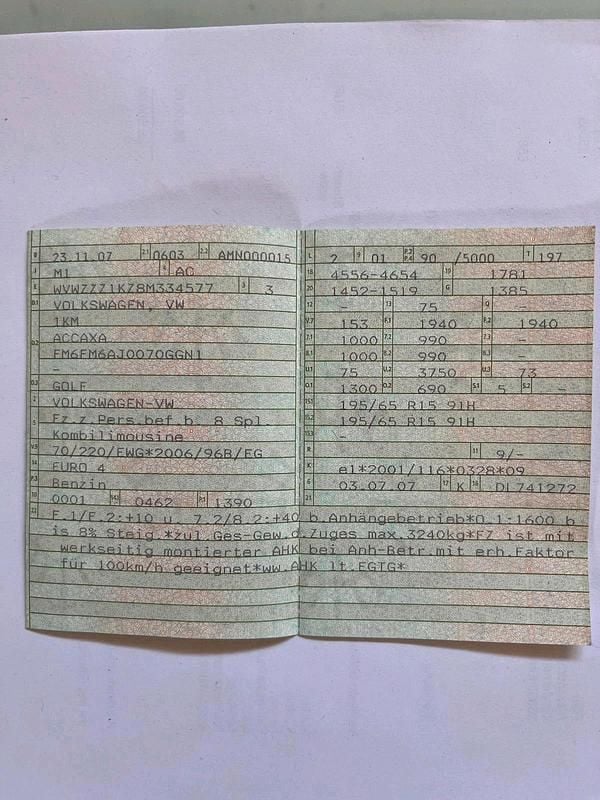 B 23.11.07 2.1 0603 2.2 AMN000015
J M1 4 AC
E WVWZZZ1KZ8M334577 3 3
D.1 VOLKSWAGEN, VW
1KM
D.2 ACCAXA
FM6FM6AJ0070GGN1
–
D.3 GOLF
2 VOLKSWAGEN-VW
5 Fz.z.Pers.bef.b. 8 Spl.
Kombilimousine
V.9 70/220/EWG*2006/96B/EG
14 EURO 4
P.3 Benzin
10 0001 14.1 0462 P.1 1390
L 2 9 01 P.2 P.4 90 /5000 T 197
18 4556-4654 19 1781
20 1452-1519 G 1385
12 – 13 75 Q –
V.7 153 F.1 1940 F.2 1940
7.1 1000 7.2 990 –
8.1 1000 8.2 990 –
U.1 75 U.2 3750 U.3 73
O.1 1300 O.2 690 S.1 5 S.2 –
15.1 195/65 R15 91H
15.2 195/65 R15 91H
15.3 –
R 11 9/–
K e1*2001/116*0328*09
6 03.07.07 17 K 16 DL741272
21
22 F.1/F.2:+10 u. 7.2/8.2:+40 b.Anhängebetrieb*O.1:1600 b
is 8% Steig.*zul.Ges-Gew.d.Zuges max.3240kg*FZ ist mit
werkseitig montierter AHK bei Anh-Betr.mit erh.Faktor
für 100km/h geeignet*ww.AHK lt.EGTG*